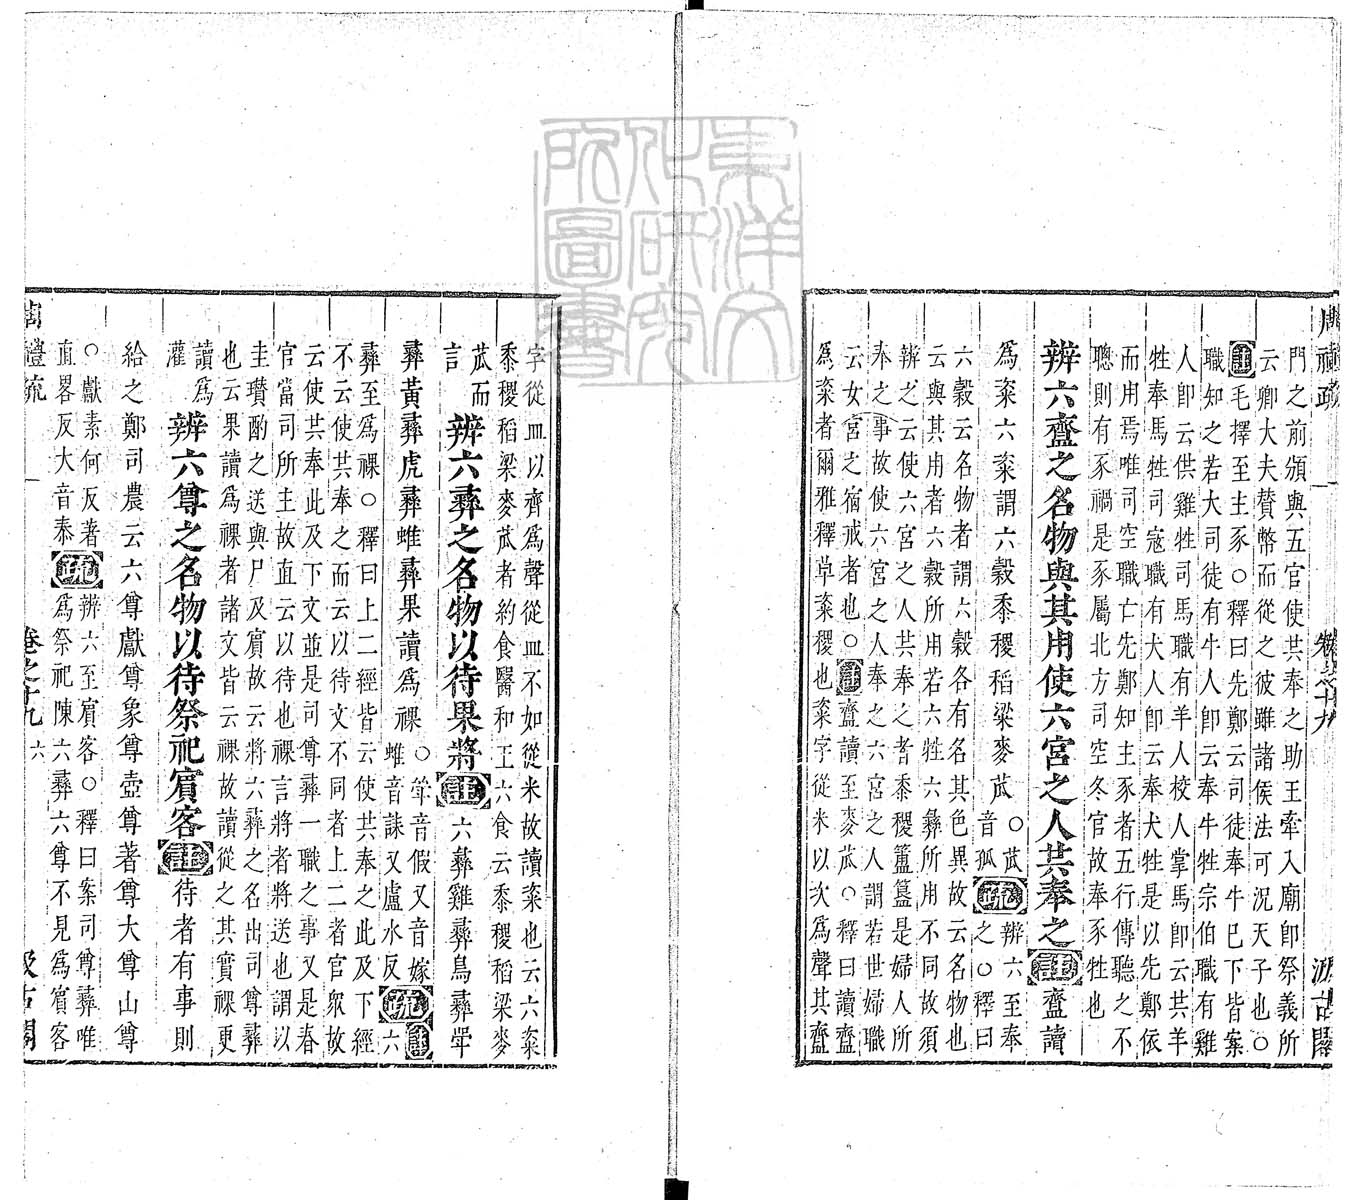 周禮疏 卷之十九 汲古閣
門之前頒與五官使共奉之助王牽入廟卽祭義所
云卿大夫贊幣而從之彼雖諸侯法可況天子也○
註毛擇至主豕○釋曰先鄭云司徒奉牛巳下皆案
職知之若大司徒有牛人卽云奉牛牲宗伯職有雞
人卽云供雞牲司馬職有羊人校人掌馬卽云共羊
牲奉馬牲司寇職有犬人卽云奉犬牲是以先鄭依
而用焉唯司空職亡先鄭知主豕者五行傳聽之不
聰則有豕禍是豕屬北方司空冬官故奉豕牲也
辨六齍之名物與其用使六宮之人共奉之註齍讀
為粢六粢謂六穀黍稷稻粱麥苽○苽音孤疏辨六至奉之○釋曰
六穀云名物者謂六穀各有名其色異故云名物也
云與其用者六穀所用若六牲六彝所用不同故須
辨之云使六宮之人共奉之者黍稷簠簋是婦人所
奉之事故使六宮之人奉之六宮之人謂若世婦職
云女宮之宿戒者也○註齍讀至麥苽○釋曰讀齍
為粢者爾雅釋草粢稷也粢字從米以次為聲其齍
字從皿以齊為聲從皿不如從米故讀粢也云六粢
黍稷稻粱麥苽者約食醫和王六食云黍稷稻粱麥
苽而言辨六彝之名物以待果將註六彝雞彝鳥彝斝
彝黃彝虎彝蜼彝果讀為祼○斝音假又音嫁蜼音誄又盧水反疏註六
彝至為祼○釋曰上二經皆云使共奉之此及下經
不云使共奉之而云以待文不同者上二者官眾故
云使共奉此及下文並是司尊彝一職之事又是春
官當司所主故直云以待也祼言將者將送也謂以
圭瓚酌之送與尸及賓故云將六彝之名出司尊彝
也云果讀為祼者諸文皆云祼故讀從之其實祼更
讀為灌辨六尊之名物以待祭祀賓客註待者有事則
給之鄭司農云六尊獻尊象尊壺尊著尊大尊山尊
○獻素何反著直畧反大音泰疏辨六至賓客○釋曰案司尊彝唯為祭祀陳六彝六尊不見為賓客
周禮疏 卷之十九 六 汲古閣
東洋文化研究所圖書